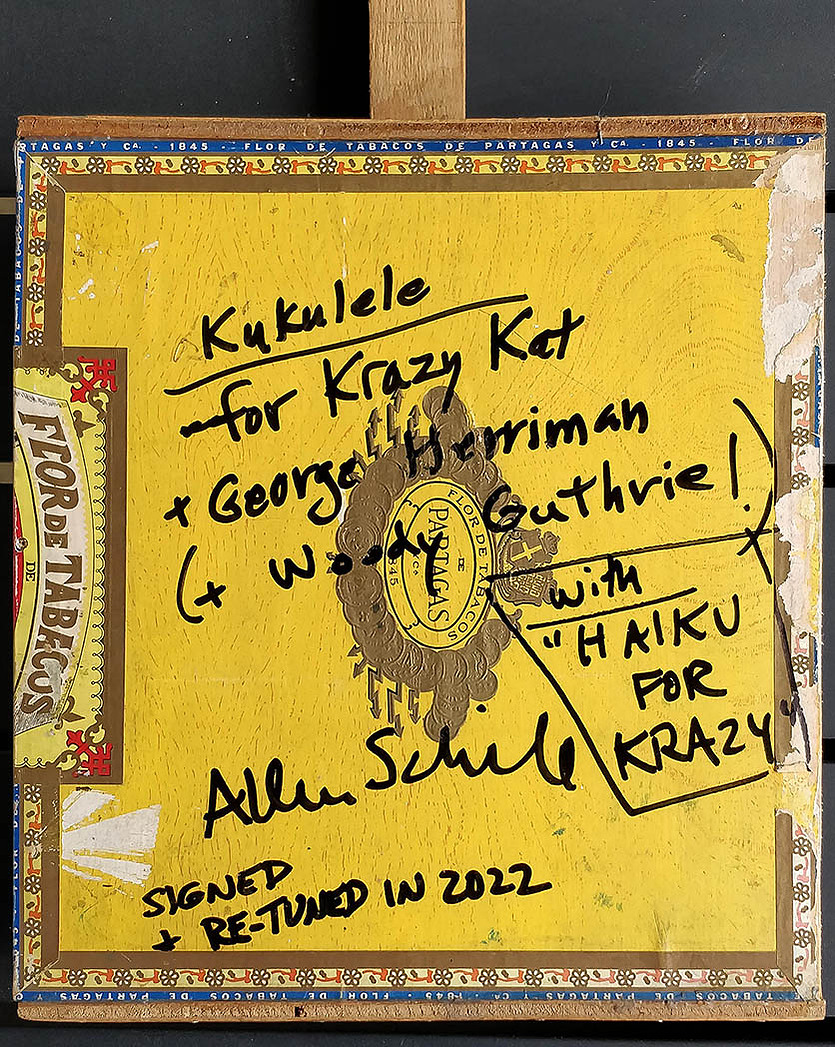 RTAGAS Y Ca. - 1845 - FLOR DE TABACOS DE PARTAGAS Y Ca. - 1845. - FLOR DE
Kukulele
- for Krazy Kat
+ George Herriman
(+ Woody Guthrie!)
with
"HAIKU
FOR
KRAZY"
FLOR DE TABACOS
DE
PARTAGAS
Y Ca
1845
FLOR DE TABACUS
DE
Allen
SIGNED
+ RE-TUNED IN 2022
DE PARTAGAS Y Ca. 1845 - FLOR DE TABACOS DE PARTAGAS Y C